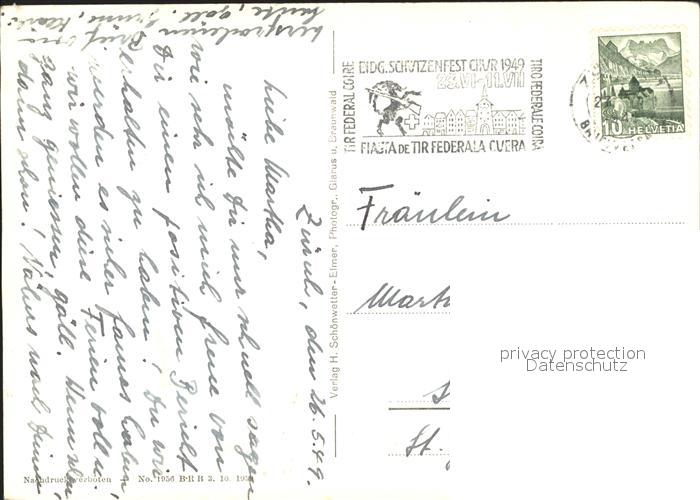 Zürich, den 26.5.49.
Liebe Martha,
möchte Dir nur schnell sagen
wie sehr ich mich freue von
Dir einen positiven Bericht
erhalten zu haben! Du wir
werden es sicher famos haben,
wir wollen diese Ferien voll u.
ganz geniessen, gäll. Wenn wir
dann schon! Näheres nach Deinem
versprochenen Brief von
heute, gäll.
EIDG. SCHÜTZENFEST CHUR 1949
23.VI.-11.VII
TIR FEDERAL COIRE
TIRO FEDERALE COIRA
FIASTA DE TIR FEDERALA CUERA
10 HELVETIA
Fräulein
Mart
St.
privacy protection
Datenschutz
Verlag H. Schönwetter-Elmer, Photogr., Glarus u. Braunwald
Nachdruck verboten No. 1936 BRB 3. 10. 19